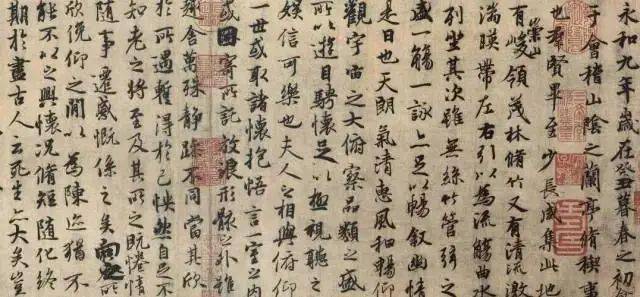 永和九年歲在癸丑暮春之初
于會稽山陰之蘭亭脩稧事
也群賢畢至少長咸集此地
有崇山峻領茂林脩竹又有清流激
湍暎帶左右引以為流觴曲水
列坐其次雖無絲竹管弦之
盛一觴一詠亦足以暢敘幽情
是日也天朗氣清惠風和暢仰
觀宇宙之大俯察品類之盛
所以遊目騁懷足以極視聽之
娛信可樂也夫人之相與俯仰
一世或取諸懷抱悟言一室之內
或因寄所託放浪形骸之外雖
趣舍萬殊靜躁不同當其欣
於所遇暫得於己怏然自足不
知老之將至及其所之既惓情
隨事遷感慨係之矣向之所
欣俛仰之閒以為陳迹猶不
能不以之興懷況脩短隨化終
期於盡古人云死生亦大矣豈